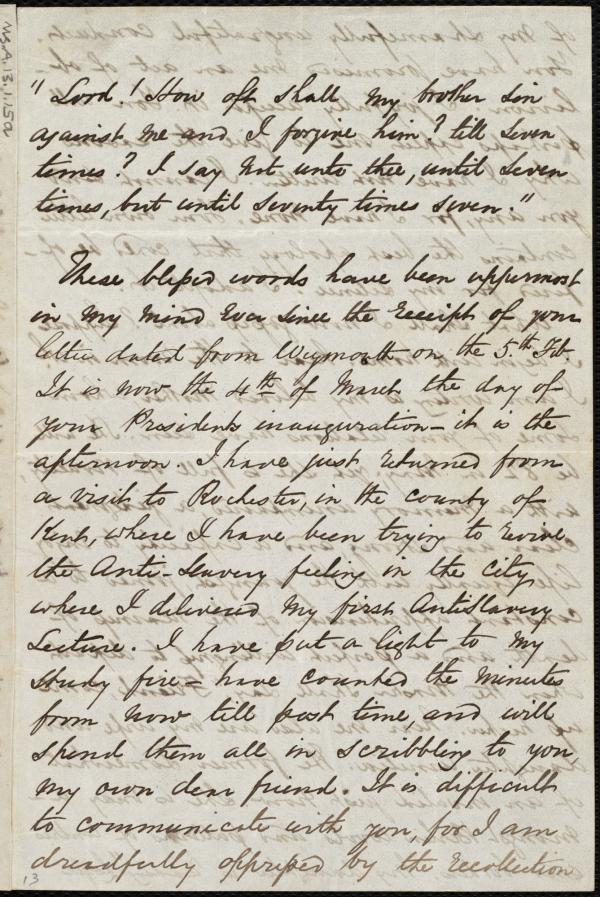 Ms.A.13.1.15a
"Lord! How oft shall my brother sin
against me and I forgive him? till seven
times? I say not unto thee, until seven
times, but until seventy times seven."
These blessed words have been uppermost
in my mind ever since the receipt of your
letter dated from Weymouth on the 5.th Feb.
It is now the 4th of March the day of
your Presidents inauguration – it is the
afternoon. I have just returned from
a visit to Rochester, in the county of
Kent, where I have been trying to revive
the Anti-Slavery feeling in the city,
where I delivered my first AntiSlavery
Lecture. I have put a light to my
study fire – have counted the minutes
from now till post time, and will
spend them all in scribbling to you,
my own dear friend. It is difficult
to communicate with you, for I am
dreadfully oppressed by the recollection
13